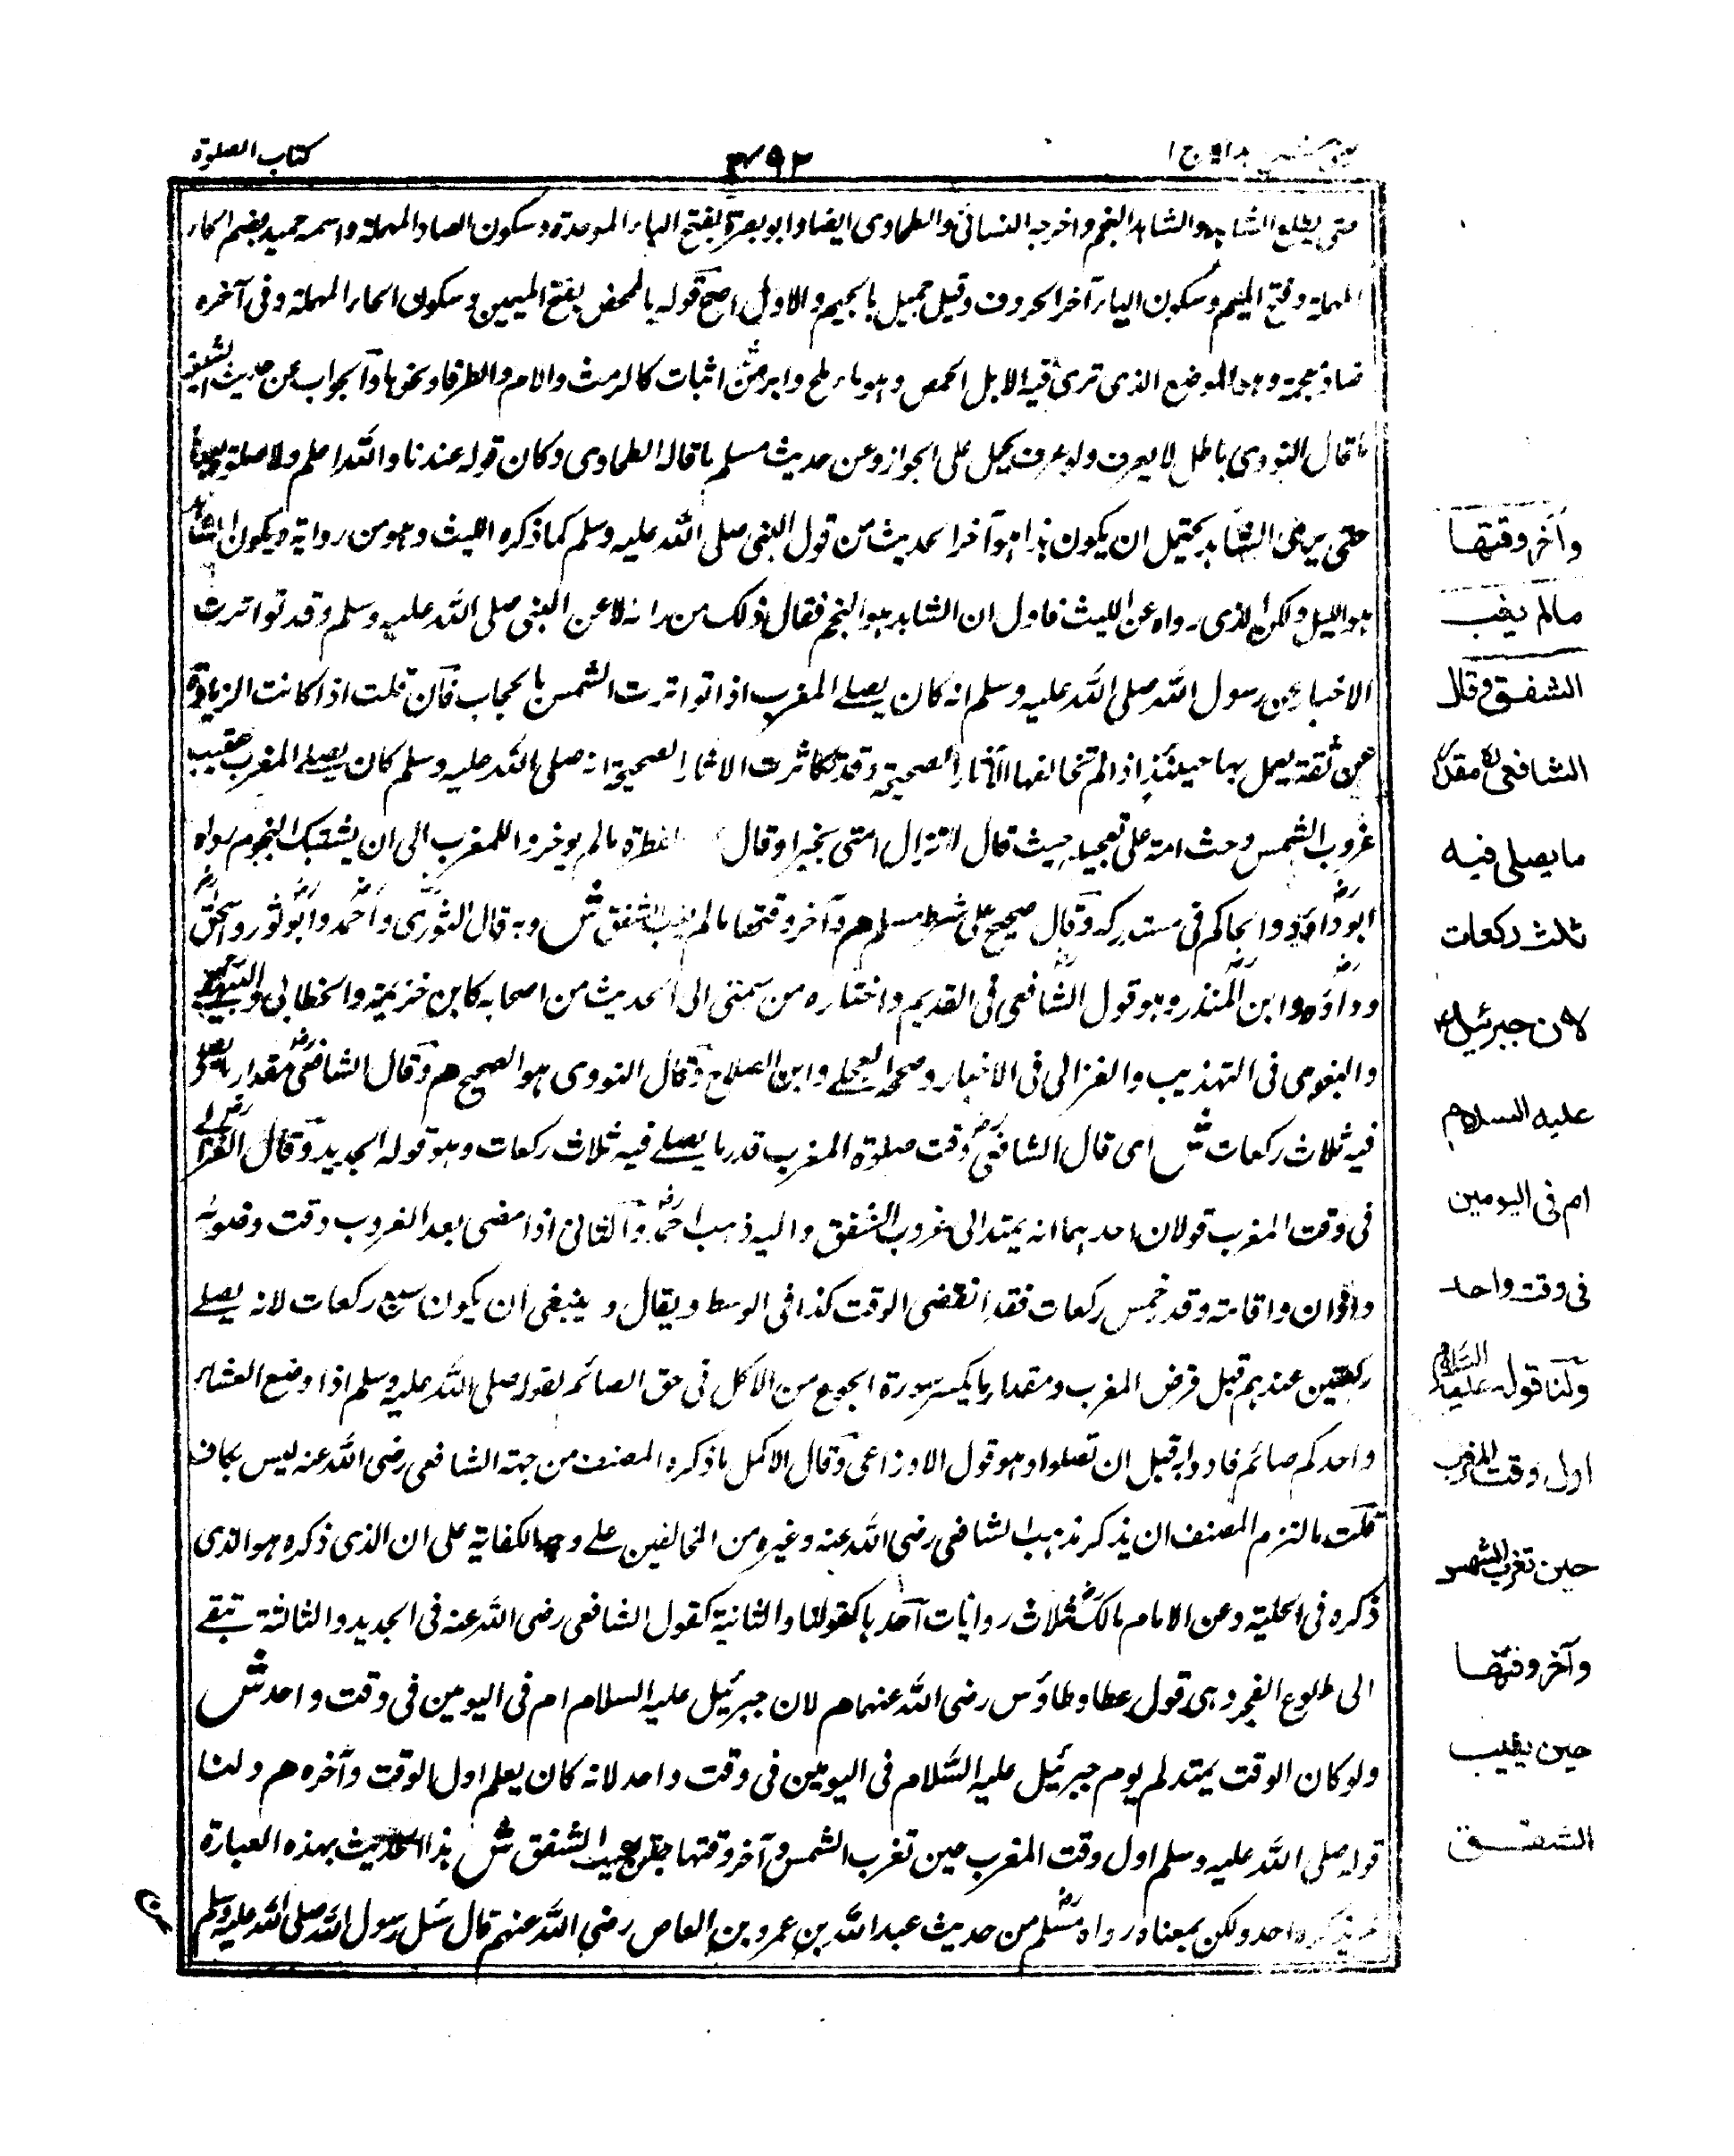 كتاب الصلوة
٤٩٢
متى يطلع الشاهد والشاهد النجم واخرجه النسائى والطحاوى ايضا وابو بصرة بفتح الباء الموحدة وسكون الصاد المهملة واسمه حميد بضم الحاء
المهملة وفتح الميم وسكون الياء آخر الحروف وقيل جميل بالجيم والاول اصح قوله بالمحمض بفتح الميمين وسكون الحاء المهملة وفى آخره
ضاد معجمة وهو الموضع الذى ترى فيه الابل الحمص وهو ماء ملح وابر من اثبات كالرمث والاثم والطرفا ونحوها والجواب عن حديث الشيعة
ما قال النووى باطل لا يعرف ولو عرف يحمل على الجواز وعن حديث مسلم ما قاله الطحاوى وكان قوله عندنا والله اعلم ولا صلوة بعدها
حتى يرى الشاهد يحتمل ان يكون هذا هو آخر الحديث من قول النبى صلى الله عليه وسلم كما ذكره الليث وهو من رواية ويكون الشاهد
هو الليل ولكن الذى رواه عن الليث فاول ان الشاهد هو النجم فقال ذلك من رائه لا عن النبى صلى الله عليه وسلم وقد تواترت
الاخبار عن رسول الله صلى الله عليه وسلم انه كان يصلے المغرب اذا تواترت الشمس بالحجاب فان قلت اذا كانت الزيادة
عن ثقة يعمل بها حينئذ اذا لم تخالفها الآثار الصحيحة وقد تكاثرت الاثار الصحيحة انه صلى الله عليه وسلم كان يصلے المغرب عقيب
غروب الشمس وحث امته على تعجيله حيث قال لا تزال امتى بخير او قال الفطرة مالم يوخروا للمغرب الى ان يشتبك النجوم رواه
ابو داؤد والحاكم فى مستدركه وقال صحيح على شرط مسلم هم وآخر وقتها مالم يغب الشفق ش وبه قال الثورى واحمد وابو ثور واسحق
وداؤد وابن المنذر وهو قول الشافعى فى القديم واختاره من سمتى الى الحديث من اصحابه كابن خزيمة والخطابى والبيهقى
والبغوى فى التهذيب والغزالى فى الاخبار وصححه العجلے وابن الصلاح وقال النووى هو الصحيح هم وقال الشافعى مقدار ما يصلى
فيه ثلاث ركعات ش اى قال الشافعى وقت صلوة المغرب قدر ما يصلے فيه ثلاث ركعات وهو قوله الجديد وقال الغزالے
فى وقت المغرب قولان احدهما انه يمتد الى غروب الشفق واليه ذهب احمد والثانى اذا مضى بعد الغروب وقت وضوئه
واذان واقامة وقد خمس ركعات فقد انقضى الوقت كذا فى الوسط ويقال وينبغى ان يكون سبع ركعات لانه يصلے
ركعتين عندهم قبل فرض المغرب ومقدار ما يكسر سورة الجوع من الاكل فى حق الصائم لقوله صلى الله عليه وسلم اذا وضع العشاء
واحدكم صائم فابدوا به قبل ان تصلوا وهو قول الاوزاعى وقال الاكمل ما ذكره المصنف من جهة الشافعى رضى الله عنه ليس بكاف
قلت ما التزم المصنف ان يذكر مذهب الشافعى رضى الله عنه وغيره من المخالفين علے وجه الكفاية على ان الذى ذكره هو الذى
ذكره فى الحلية وعن الامام مالك ثلاث روايات احدها كقولنا والثانية كقول الشافعى رضى الله عنه فى الجديد والثالثة تبقے
الى طلوع الفجر وهى قول عطا وطاؤس رضى الله عنهما هم لان جبرئيل عليه السلام ام فى اليومين فى وقت واحد ش
ولو كان الوقت يمتد لم يوم جبرئيل عليه السلام فى اليومين فى وقت واحد لانه كان يعلم اول الوقت وآخره هم ولنا
قوله صلى الله عليه وسلم اول وقت المغرب حين تغرب الشمس وآخر وقتها حين يغيب الشفق ش هذا الحديث بهذه العبارة
لم يذكره احد ولكن بمعناه رواه مسلم من حديث عبد الله بن عمرو بن العاص رضى الله عنهم قال سئل رسول الله صلى الله عليه وسلم
وآخر وقتها
مالم يغب
الشفق وقال
الشافعى مقدار
ما يصلى فيه
ثلث ركعات
لان جبرئيل
عليه السلام
ام فى اليومين
فى وقت واحد
ولنا قوله عليه السلام
اول وقت المغرب
حين تغرب الشمس
وآخر وقتها
حين يغيب
الشفق